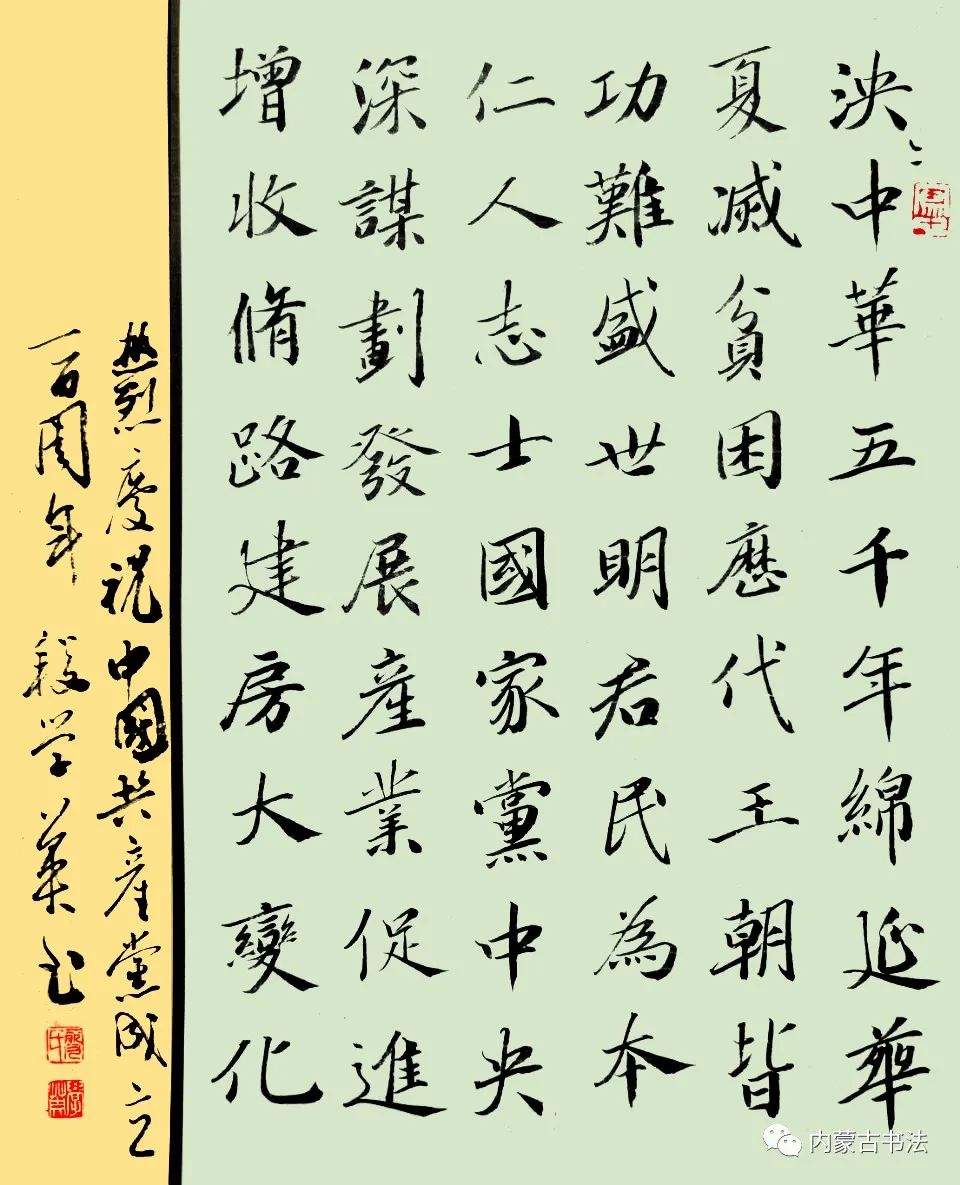 泱〻中華五千年綿延華
夏滅貧困歷代王朝皆
功難盛世明君民為本
仁人志士國家黨中央
深謀劃發展產業促進
增收脩路建房大變化
热烈慶祝中國共產黨成立
一百周年 段学華书
内蒙古书法